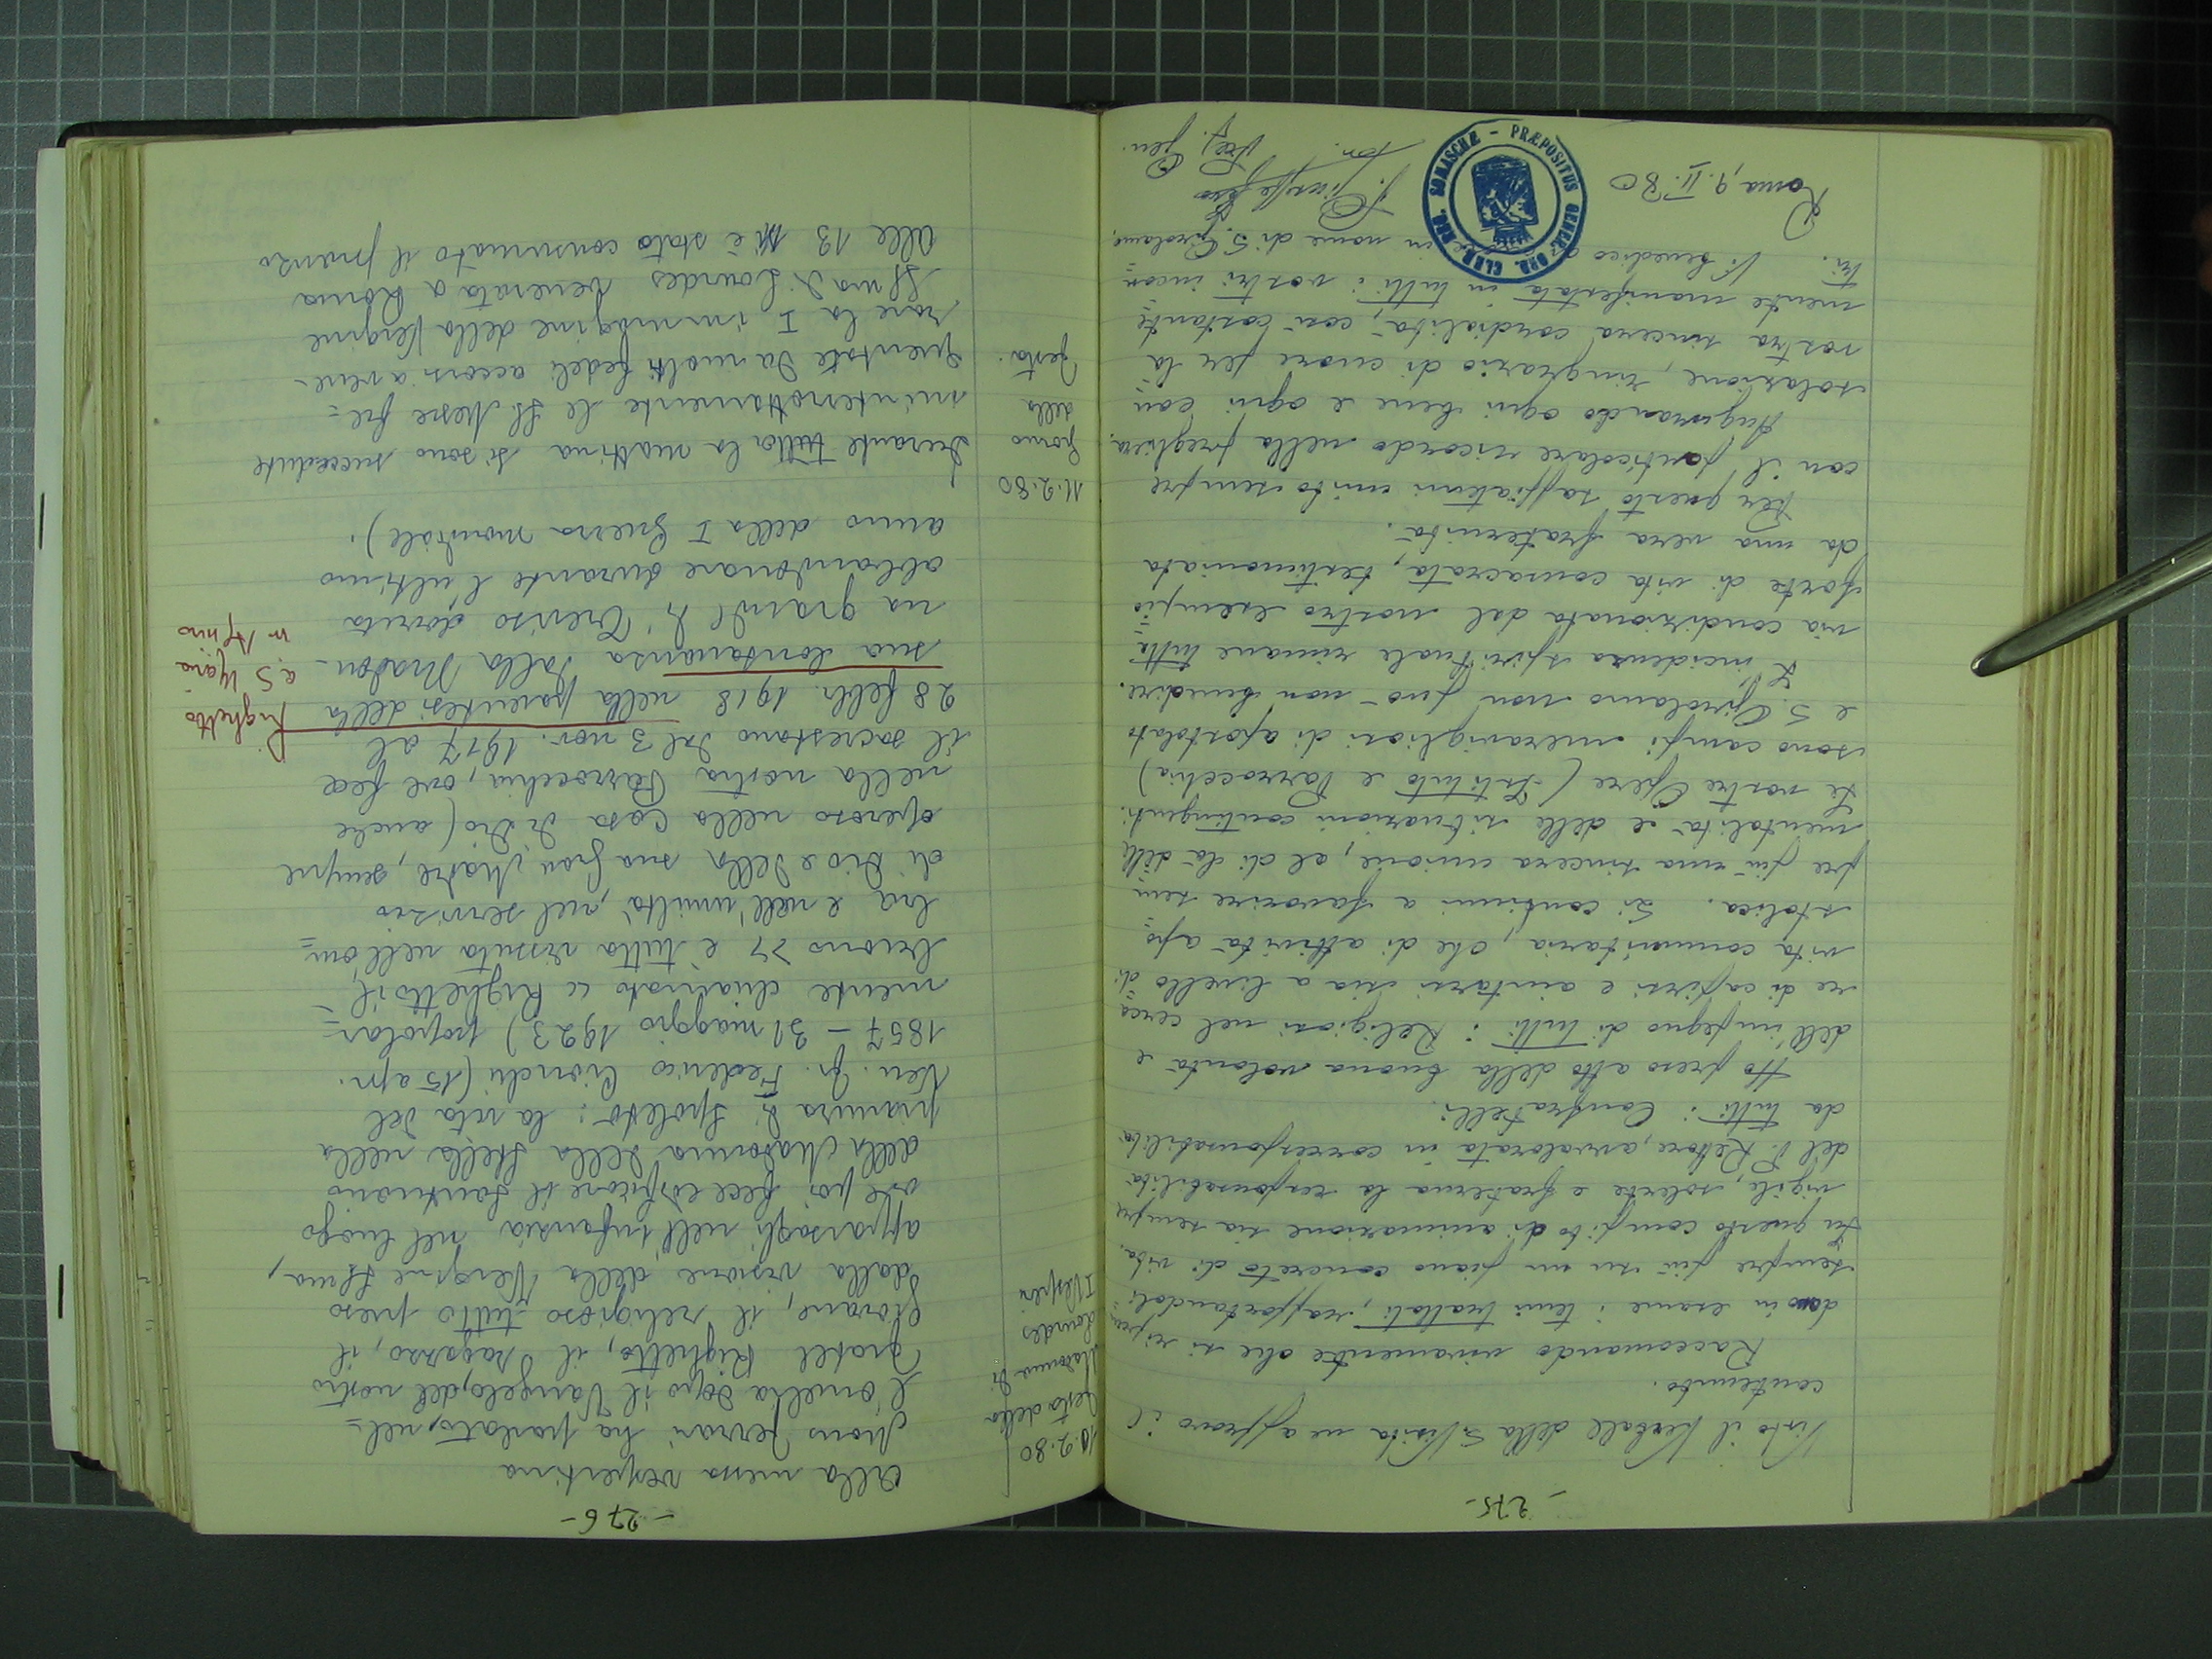 - 275 -
Visto il Verbale della S. Visita ne approvo il
contenuto.
Raccomando vivamente che si ripren=
dano in esame i temi trattati, rapportandoli
sempre più su un piano concreto di vita.
In questo compito di animazione sia sempre
vigile, solerte e fraterna la responsabilità
del P. Rettore, avvalorata in corresponsabilità
da tutti i Confratelli.
Ho preso atto della buona volontà e
dell'impegno di tutti i Religiosi nel cerca=
re di capirsi e aiutarsi sia a livello di
vita comunitaria, che di attività apo=
stolica. Si continui a favorire sem=
pre più una sincera unione, al di là delle
mentalità e delle situazioni contingenti.
Le vostre Opere (Istituto e Parrocchia)
sono campi meravigliosi di apostolato
e S. Girolamo non può non benedire.
L'incidenza spirituale rimane tutta=
via condizionata dal nostro esempio
forte di vita consacrata, testimoniata
da una vera fraternità.
Per questo sappiatemi unito sempre
con il particolare ricordo nella preghiera.
Augurando ogni bene e ogni con=
solazione, ringrazio di cuore per la
vostra sincera cordialità, così costante=
mente manifestata in tutti i vostri incon=
tri. Vi benedico in nome di S. Girolamo.
Roma, 9. II. 80
P. Giuseppe Fava
Prep. Gen.
PRÆPOSITUS GENER. ORD. CLER. REG. SOMASCHÆ -
- 276 -
10.2.80
Festa della
Madonna di
Lourdes
I Vespri
Alla messa vespertina
Mons Ferrari ha parlato, nel=
l'omelia dopo il Vangelo, del nostro
fratel Righetto, il ragazzo, il
giovane, il religioso tutto preso
dalla visione della Vergine SS.ma,
apparsagli nell'infanzia nel luogo
ove poi fece edificare il Santuario
della Madonna della Stella nella
pianura di Spoleto: la vita del
Ven. fr. Federico Cionchi (15 apr.
1857 - 31 maggio 1923) popolar=
mente chiamato << Righetto il
buono >> è tutta vissuta nell'om=
bra e nell'umiltà, nel servizio
di Dio e della sua gran Madre, sempre
operoso nella Casa di Dio (anche
nella nostra Parrocchia, ove fece
il sacrestano dal 3 nov. 1917 al
28 febbr. 1918 nella parentesi della
sua lontananza dalla Madon-
na grande di Treviso dovuta
abbandonare durante l'ultimo
anno della I Guerra mondiale).
Righetto
a S. Maria
in Aquiro
11.2.80
giorno
della
festa.
Durante tutta la mattina si sono succedute
ininterrottamente le SS. Messe fre=
quentate da molti fedeli accorsi a vene-
rare la I immagine della Vergine
SS.ma di Lourdes venerata a Roma
Alle 13 è stato consumato il pranzo